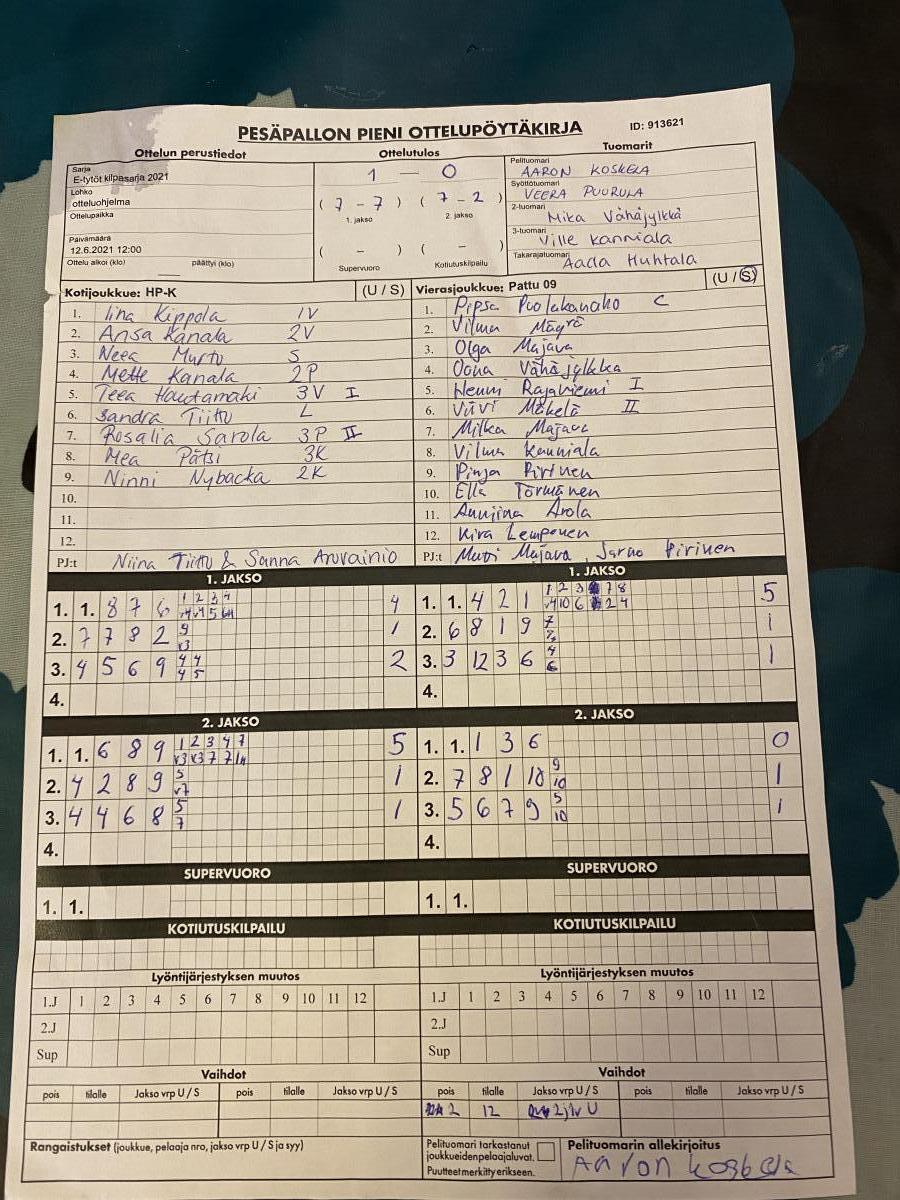 PESÄPALLON PIENI OTTELUPÖYTÄKIRJA ID: 913621
Ottelun perustiedot Ottelutulos Tuomarit
Sarja
E-tytöt kilpasarja 2021
Lohko
otteluohjelma
Ottelupaikka
Päivämäärä
12.6.2021 12:00
Ottelu alkoi (klo) päättyi (klo)
1 — 0
( 7 - 7 ) ( 7 - 2 )
1. jakso 2. jakso
( - ) ( - )
Supervuoro Kotiutuskilpailu
Pelituomari
AARON KOSKELA
Syöttötuomari
VEERA PUURULA
2-tuomari
Mika Vähäjylkkä
3-tuomari
Ville Kanniala
Takarajatuomari
Aada Huhtala
Kotijoukkue: HP-K (U / S)
1. Iina Kippola 1V
2. Ansa Kanala 2V
3. Neea Murto S
4. Mette Kanala 2P
5. Teea Hautamäki 3V I
6. Sandra Tiitto L
7. Rosalia Sarola 3P II
8. Mea Pätsi 3K
9. Ninni Nybacka 2K
10.
11.
12.
PJ:t Niina Tiitto & Sanna Arovainio
Vierasjoukkue: Pattu 09 (U / S)
1. Pipsa Puolakanaho C
2. Vilma Mäyrä
3. Olga Majava
4. Oona Vähäjylkkä
5. Henni Rajaniemi I
6. Viivi Mäkelä II
7. Milka Majava
8. Vilma Kanniala
9. Pinja Pirinen
10. Ella Törmänen
11. Anniina Arola
12. Kira Lemponen
PJ:t Matti Majava, Jarno Pirinen
1. JAKSO
1. 1. 8 7 6 1 2 3 4 4
2. 7 7 8 2 9 1
v3
3. 4 5 6 9 4 4 2
4 5
4.
1. JAKSO
1. 1. 4 2 1 1 2 3 7 8 5
v4 10 6 2 4
2. 6 8 1 9 7 1
3. 3 12 3 6 4 1
6
4.
2. JAKSO
1. 1. 6 8 9 1 2 3 4 7 5
v3 v3 7 7
2. 4 2 8 9 5 1
v7
3. 4 4 6 8 5 1
7
4.
2. JAKSO
1. 1. 1 3 6 0
2. 7 8 1 10 9 1
10
3. 5 6 7 9 5 1
10
4.
SUPERVUORO
1. 1.
SUPERVUORO
1. 1.
KOTIUTUSKILPAILU
KOTIUTUSKILPAILU
Lyöntijärjestyksen muutos
1.J 1 2 3 4 5 6 7 8 9 10 11 12
2.J
Sup
Lyöntijärjestyksen muutos
1.J 1 2 3 4 5 6 7 8 9 10 11 12
2.J
Sup
Vaihdot
pois tilalle Jakso vrp U / S pois tilalle Jakso vrp U / S
Vaihdot
pois tilalle Jakso vrp U / S pois tilalle Jakso vrp U / S
2 12 2j1v U
Rangaistukset (joukkue, pelaaja nro, jakso vrp U / S ja syy)
Pelituomari tarkastanut
joukkueiden pelaajaluvat.
Puutteet merkitty erikseen.
Pelituomarin allekirjoitus
Aaron Koskela